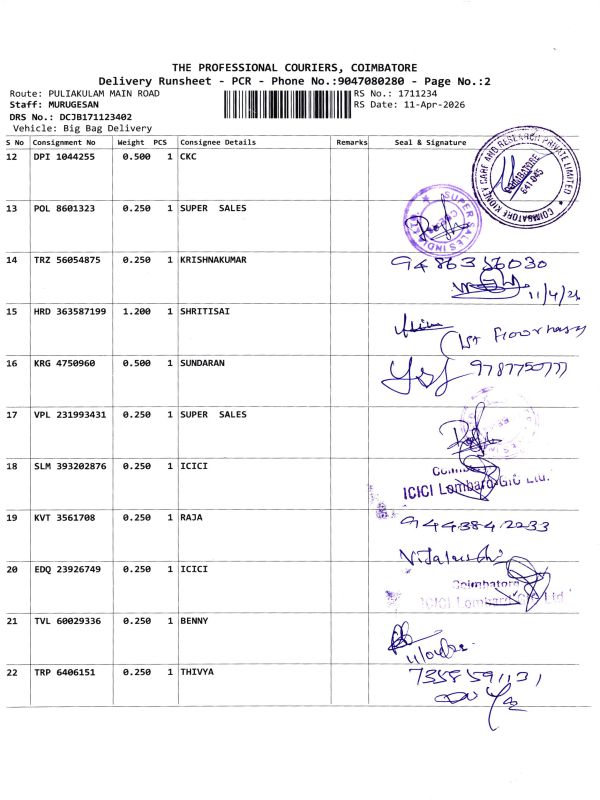 THE PROFESSIONAL COURIERS, COIMBATORE
Delivery Runsheet - PCR - Phone No.:9047080280 - Page No.:2
Route: PULIAKULAM MAIN ROAD RS No.: 1711234
Staff: MURUGESAN RS Date: 11-Apr-2026
DRS No.: DCJB171123402
Vehicle: Big Bag Delivery
S No Consignment No Weight PCS Consignee Details Remarks Seal & Signature
12 DPI 1044255 0.500 1 CKC
COIMBATORE KIDNEY CARE AND RESEARCH PRIVATE LIMITED
COIMBATORE
641 045
13 POL 8601323 0.250 1 SUPER SALES
SUPER SALES INDIA
14 TRZ 56054875 0.250 1 KRISHNAKUMAR
9486356030
11/4/26
15 HRD 363587199 1.200 1 SHRITISAI
1st Floor
16 KRG 4750960 0.500 1 SUNDARAN
9787750777
17 VPL 231993431 0.250 1 SUPER SALES
18 SLM 393202876 0.250 1 ICICI
ICICI Lombard GIC Ltd.
19 KVT 3561708 0.250 1 RAJA
9443842033
20 EDQ 23926749 0.250 1 ICICI
Coimbatore
ICICI Lombard GIC Ltd
21 TVL 60029336 0.250 1 BENNY
22 TRP 6406151 0.250 1 THIVYA
7358591131